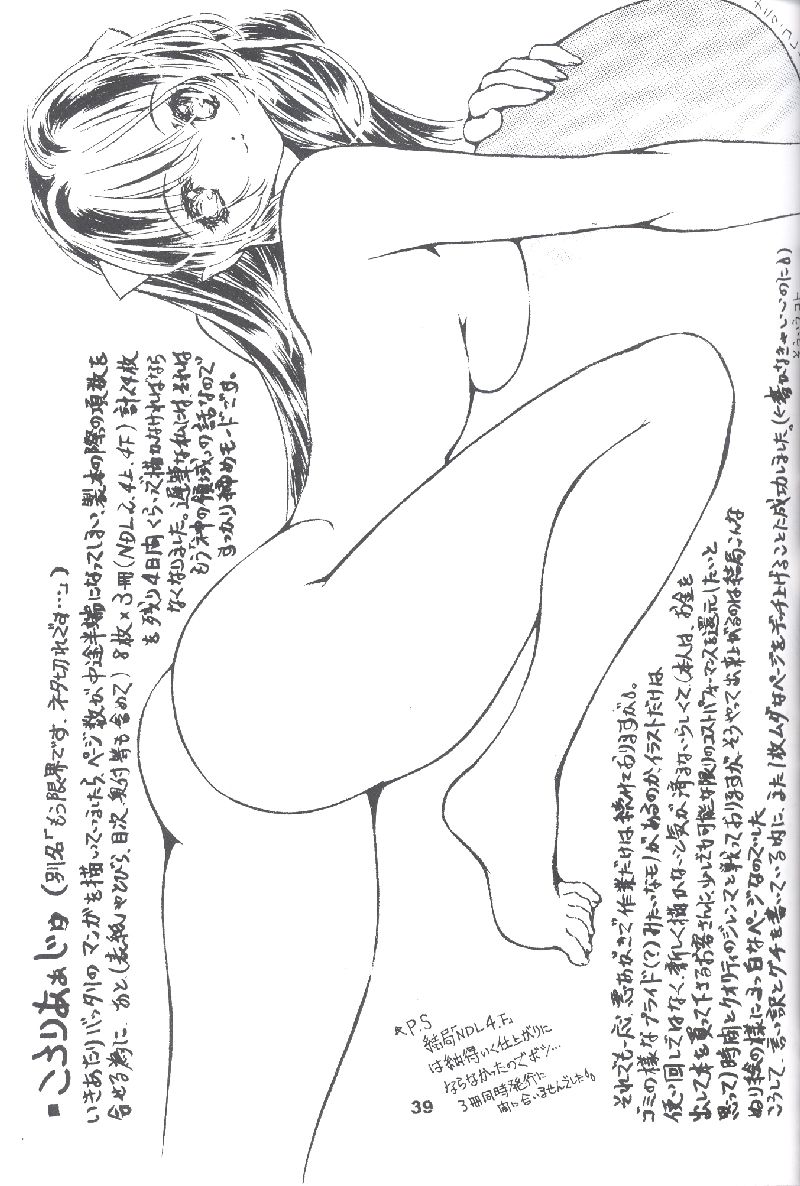 ■ころりあぁじゅ (別名「もう限界です、ネタ切れです…」)
いきあたりバッタリのマンガを描いていましたら、ページ数が中途半端になってしまい、製本の際の頁数を
合せる為に、あとし(表紙やとびら、目次、奥付等も含めて) 8枚×3冊(NDL2.4上.4下) 計24枚
を残り4日間くらいで描かなければなら
なくなりました。遅筆な私には、それは
もう「神の領域」の話なので
すっかり諦めモードです。
それでも一応、悪あがきで作業だけは続けておりますが。
ゴミの様なプライド(?)みたいなモノがあるのか、イラストだけは
使い回しではなく、新しく描かないと気が済まないらしくて、(本人は、お金を
出して本を買って下さるお客さんに、少しでも可能な限りのコストパフォーマンスを還元したいと
思って) 時間とクオリティのジレンマと戦っておりますが、そうやって出来上がるのは結局こんな
ぬり絵の様なまっ白なページなのでした
こうして、言い訳とグチを書いている内に、また1枚ムダなページをデッチ上げることに成功しました。
★P.S
結局「NDL4.下」
は納得いく仕上がりに
ならなかったのでボツ…
3冊同時発行に
間に合いませんでした
39